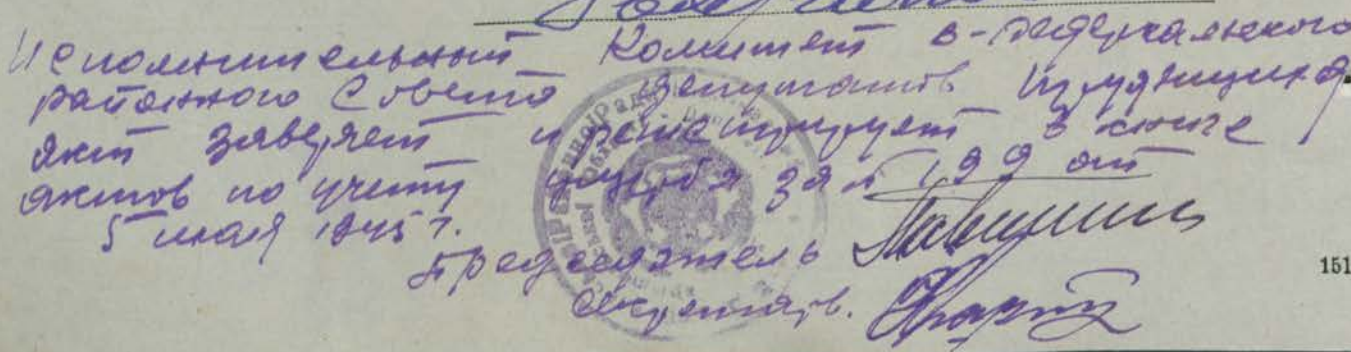 Исполнительный Комитет В-Дедеркальского
районного Совета Депутатов Трудящихся
акт заверяет и регистрирует в книге
актов по учету ущерба за № 199 от
5 мая 1945 г.
Председатель
151
Секретарь.